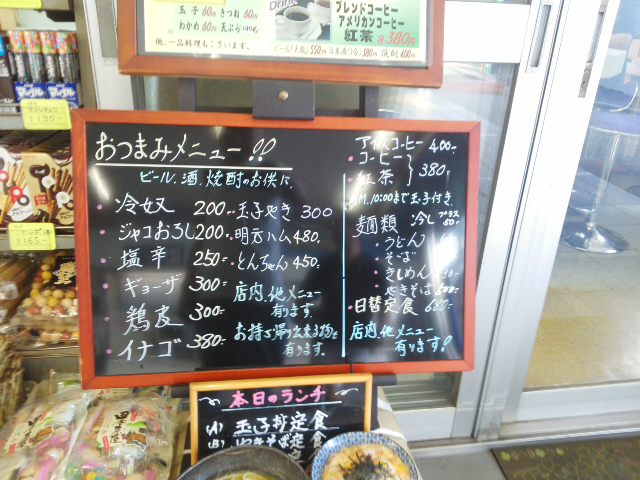 玉子 60円 きつね 60円
わかめ 60円 天ぷら
他、一品料理もございます。
Drink
ブレンドコーヒー
アメリカンコーヒー
紅茶 各380円
おつまみメニュー!!
ビール、酒、焼酎のお供に
・冷奴 200-
・ジャコおろし 200-
・塩辛 250-
・ギョーザ 300-
・鶏皮 300-
・イナゴ 380-
・玉子やき 300
・明元ハム 480-
・とんちゃん 450-
店内、他メニュー
有ります。
お持ち帰り出来る物も
有ります。
アイスコーヒー 400-
・コーヒー
・紅茶 380-
A.M.10:00まで玉子付き
麺類 冷しプラス50-
・うどん
・そば
・きしめん
・やきそば 500-
・日替定食 680-
店内、他メニュー
有ります!!
本日のランチ
(A) 玉子丼定食
(B) やきそば定食
¥130-
¥165-